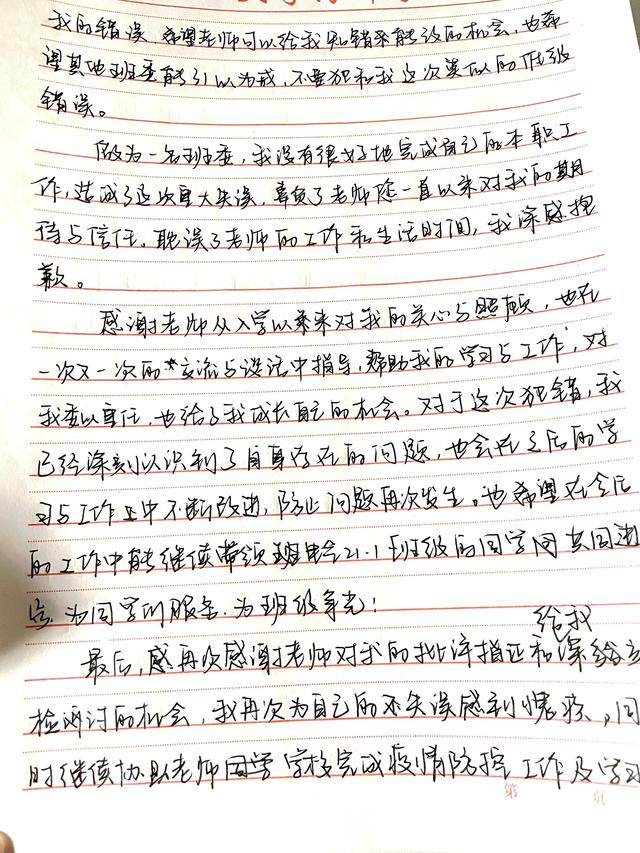 我的错误，希望老师可以给我知错就能改的机会，也希
望其他班委能引以为戒，不要犯和我这次类似的低级
错误。
做为一名班委，我没有很好地完成自己的本职工
作，造成了这次重大失误，辜负了老师您一直以来对我的期
待与信任。耽误了老师的工作和生活时间，我深感抱
歉。
感谢老师从入学以来对我的关心与照顾，也在
一次又一次的交流与谈话中指导，帮助我的学习与工作，对
我委以重任，也给了我成长自己的机会。对于这次犯错，我
已经深刻认识到了自身存在的问题，也会在之后的学
习与工作中不断改进，防止问题再次发生。也希望在今后
的工作中能继续带领 21.1班级的同学们共同进
步，为同学们服务，为班级争光！
给我
最后，再次感谢老师对我的批评指正和深
检讨的机会，我再次为自己的失误感到愧疚，同
时继续协助老师 学校完成疫情防控工作及学习
第 页